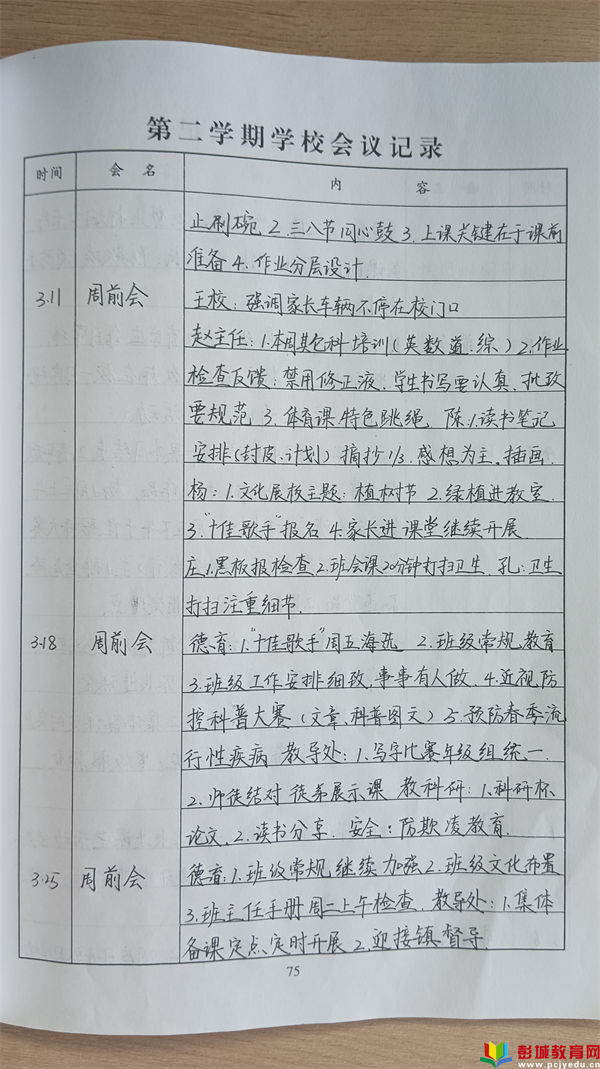 第二学期学校会议记录
时间 会名 内容
止刷碗 2.三八节同心鼓 3.上课关键在于课前
准备 4.作业分层设计.
3.11 周前会 王校:强调家长车辆不停在校门口
赵主任:1.本周其它科培训(英.数.道.综) 2.作业
检查反馈:禁用修正液.学生书写要认真.批改
要规范 3.体育课:特色跳绳 陈:1.读书笔记
安排(封皮、计划) 摘抄1/3.感想为主.插画.
杨:1.文化展板主题:植树节 2.绿植进教室.
3."十佳歌手"报名 4.家长进课堂继续开展.
庄:1.黑板报检查 2.班会课20分钟打扫卫生 孔:卫生
打扫注重细节.
3.18 周前会 德育:1."十佳歌手"周五海选 2.班级常规教育
3.班级工作安排细致,事事有人做. 4.近视防
控科普大赛(文章、科普图文) 5.预防春季流
行性疾病 教导处:1.写字比赛年级组统一.
2.师徒结对 徒弟展示课 教科研:1.科研杯
论文. 2.读书分享. 安全:防欺凌教育.
3.25 周前会 德育:1.班级常规继续加强 2.班级文化布置
3.班主任手册周二上午检查. 教导处:1.集体
备课定点、定时开展 2.迎接镇督导.
75
彭城教育网
www.pcjyedu.cn